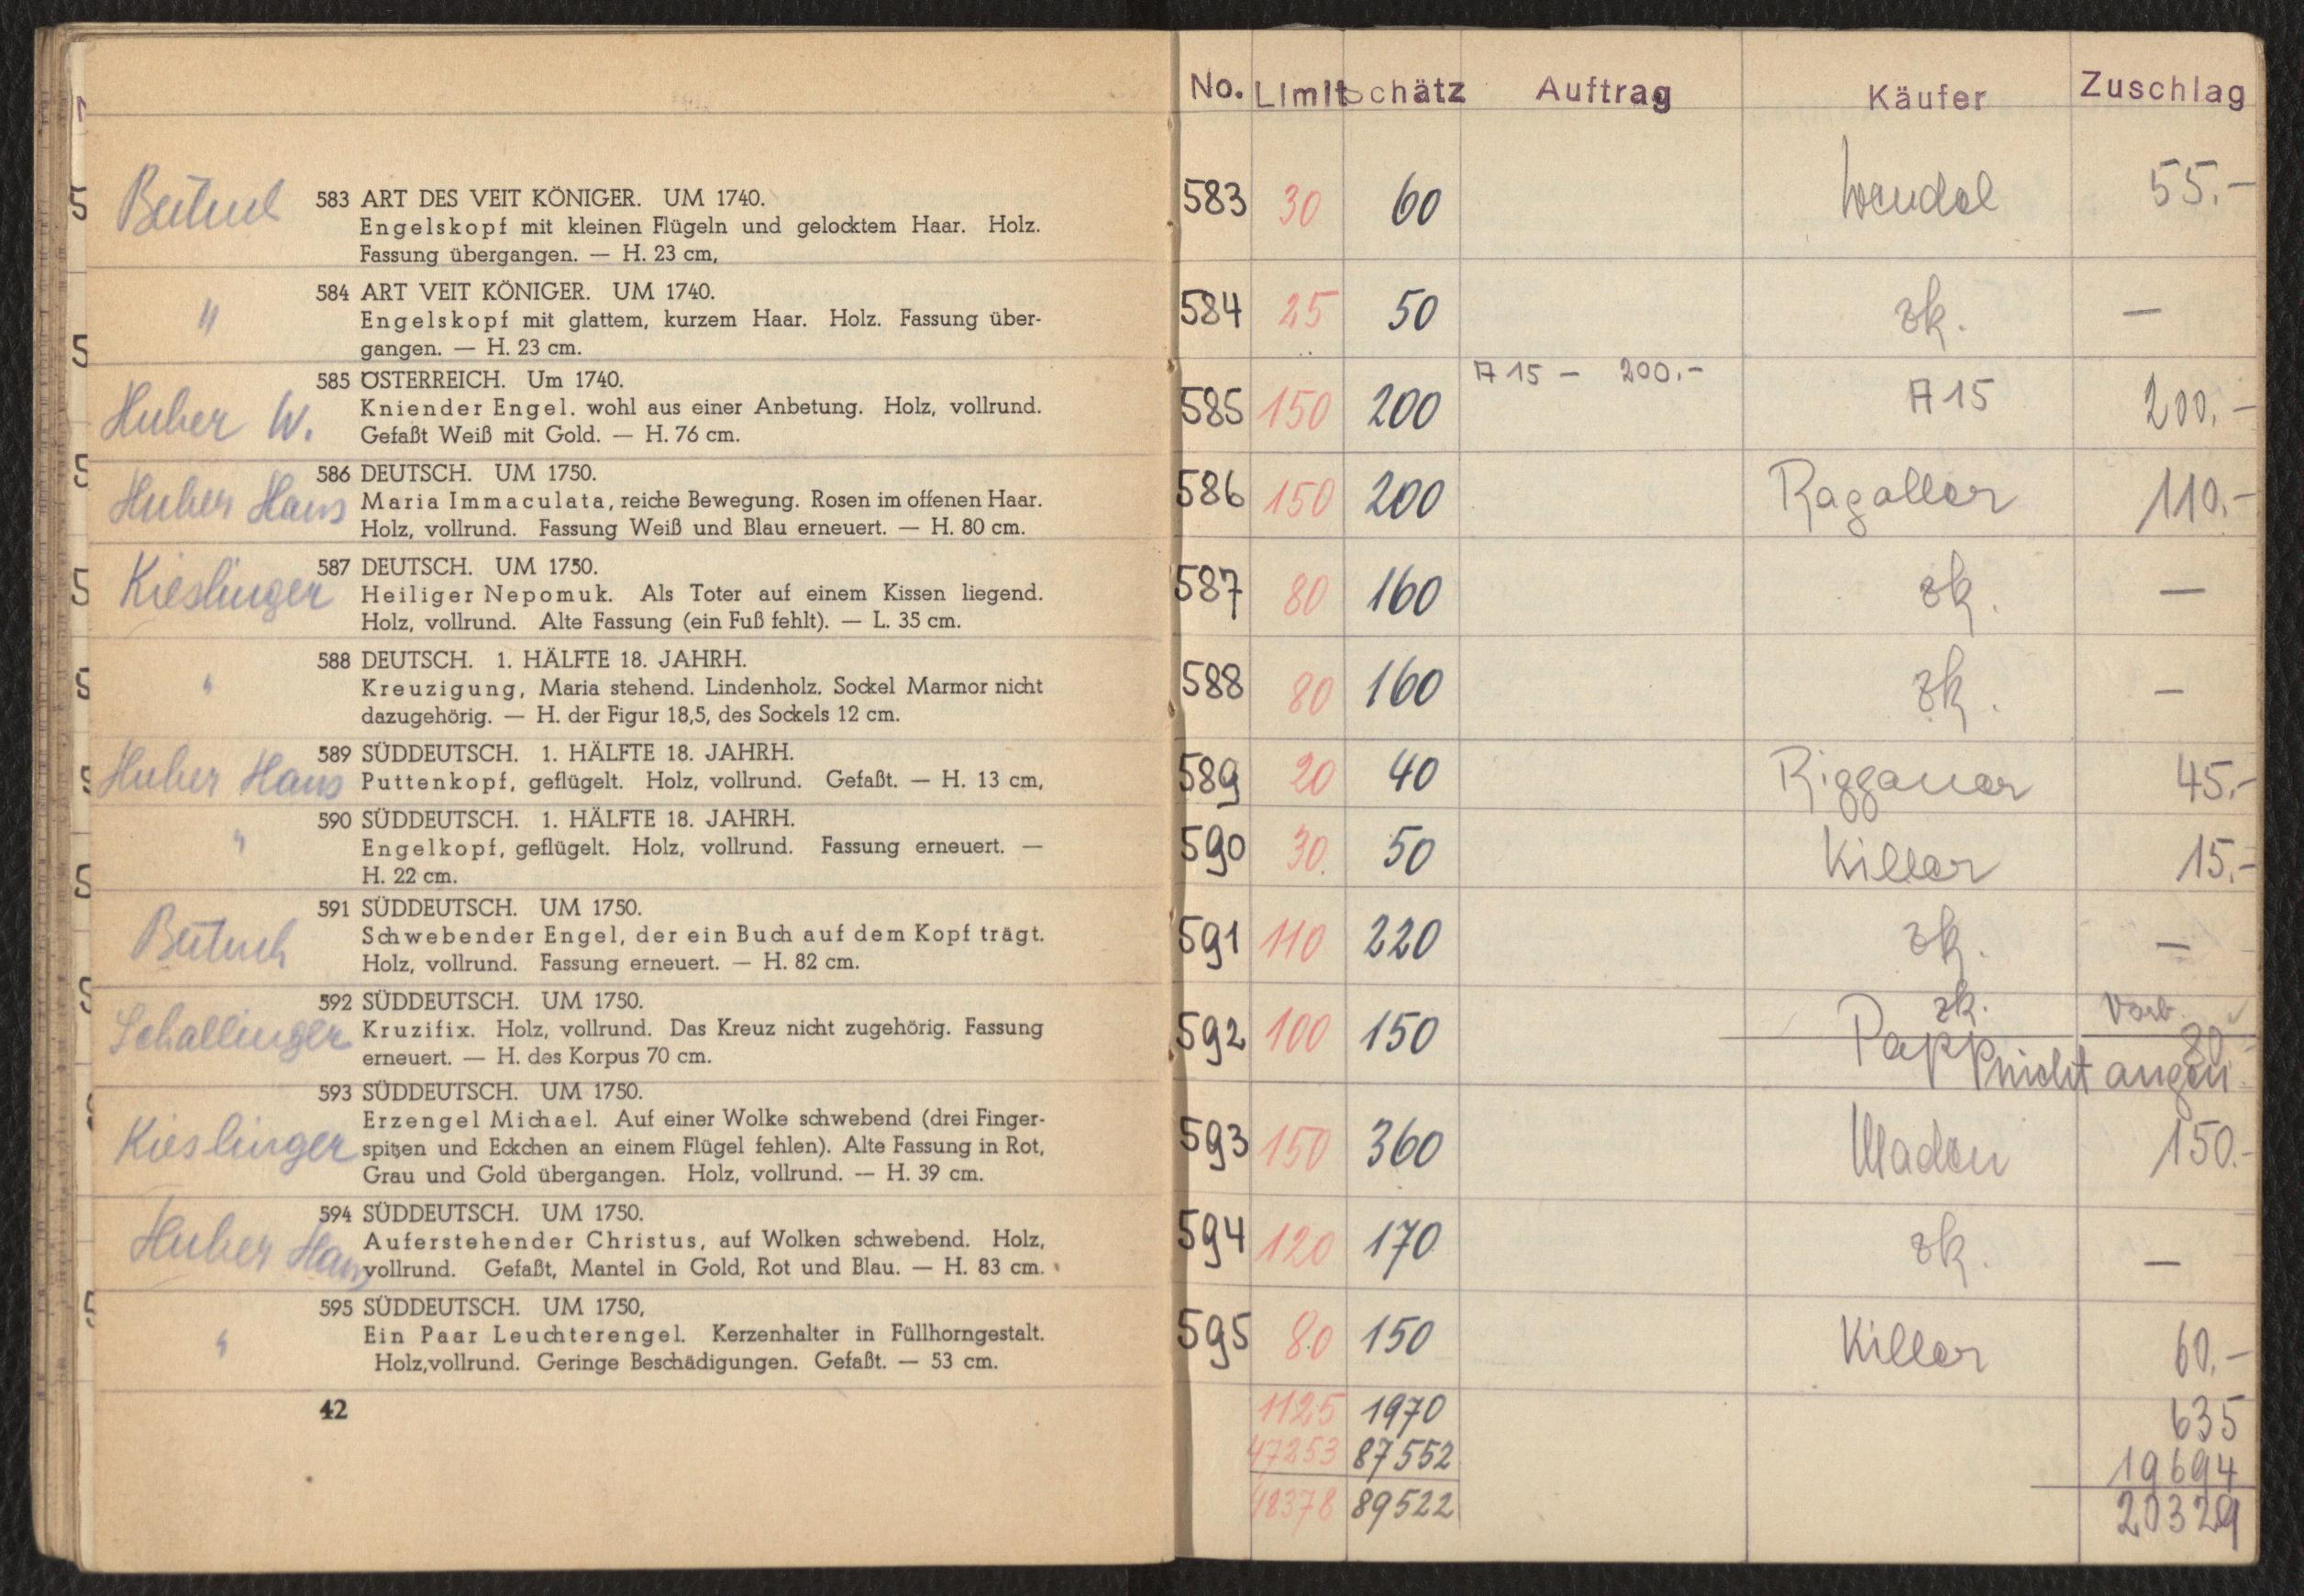 583 ART DES VEIT KÖNIGER. UM 1740.
Engelskopf mit kleinen Flügeln und gelocktem Haar. Holz.
Fassung übergangen. — H. 23 cm,
"
584 ART VEIT KÖNIGER. UM 1740.
Engelskopf mit glattem, kurzem Haar. Holz. Fassung über-
gangen. — H. 23 cm.
Huber W.
585 ÖSTERREICH. Um 1740.
Kniender Engel. wohl aus einer Anbetung. Holz, vollrund.
Gefaßt Weiß mit Gold. — H. 76 cm.
Huber Hans
586 DEUTSCH. UM 1750.
Maria Immaculata, reiche Bewegung. Rosen im offenen Haar.
Holz, vollrund. Fassung Weiß und Blau erneuert. — H. 80 cm.
Kieslinger
587 DEUTSCH. UM 1750.
Heiliger Nepomuk. Als Toter auf einem Kissen liegend.
Holz, vollrund. Alte Fassung (ein Fuß fehlt). — L. 35 cm.
"
588 DEUTSCH. 1. HÄLFTE 18. JAHRH.
Kreuzigung, Maria stehend. Lindenholz. Sockel Marmor nicht
dazugehörig. — H. der Figur 18,5, des Sockels 12 cm.
Huber Hans
589 SÜDDEUTSCH. 1. HÄLFTE 18. JAHRH.
Puttenkopf, geflügelt. Holz, vollrund. Gefaßt. — H. 13 cm,
"
590 SÜDDEUTSCH. 1. HÄLFTE 18. JAHRH.
Engelkopf, geflügelt. Holz, vollrund. Fassung erneuert. —
H. 22 cm.
591 SÜDDEUTSCH. UM 1750.
Schwebender Engel, der ein Buch auf dem Kopf trägt.
Holz, vollrund. Fassung erneuert. — H. 82 cm.
Schallinger
592 SÜDDEUTSCH. UM 1750.
Kruzifix. Holz, vollrund. Das Kreuz nicht zugehörig. Fassung
erneuert. — H. des Korpus 70 cm.
Kieslinger
593 SÜDDEUTSCH. UM 1750.
Erzengel Michael. Auf einer Wolke schwebend (drei Finger-
spitzen und Eckchen an einem Flügel fehlen). Alte Fassung in Rot,
Grau und Gold übergangen. Holz, vollrund. — H. 39 cm.
Huber Hans
594 SÜDDEUTSCH. UM 1750.
Auferstehender Christus, auf Wolken schwebend. Holz,
vollrund. Gefaßt, Mantel in Gold, Rot und Blau. — H. 83 cm.
"
595 SÜDDEUTSCH. UM 1750,
Ein Paar Leuchterengel. Kerzenhalter in Füllhorngestalt.
Holz,vollrund. Geringe Beschädigungen. Gefaßt. — 53 cm.
42
No. Limit Schätz Auftrag Käufer Zuschlag
583 30 60 Wendel 55.-
584 25 50 zk. —
585 150 200 A 15 — 200.- A 15 200.-
586 150 200 Ragaller 110.-
587 80 160 zk. —
588 80 160 zk. —
589 20 40 Riggauer 45.-
590 30. 50 Killer 15.-
591 110 220 zk. —
zk. Vorb.
592 100 150 Papp 80
nicht angen.
593 150 360 150.-
594 120 170 zk. —
595 80 150 Killer 60.-
1125 1970 635
47253 87552 19694
48378 89522 20329